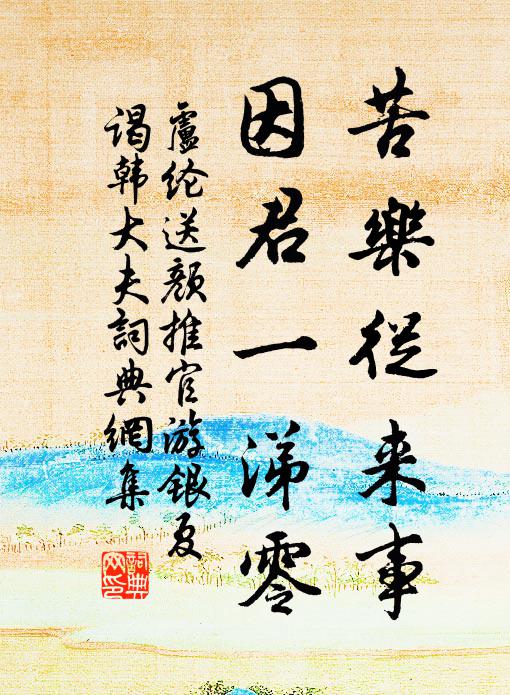 苦樂從来事
因君一涕零
盧纶送颜推官游银夏
谒韩大夫詞典網集
詞典